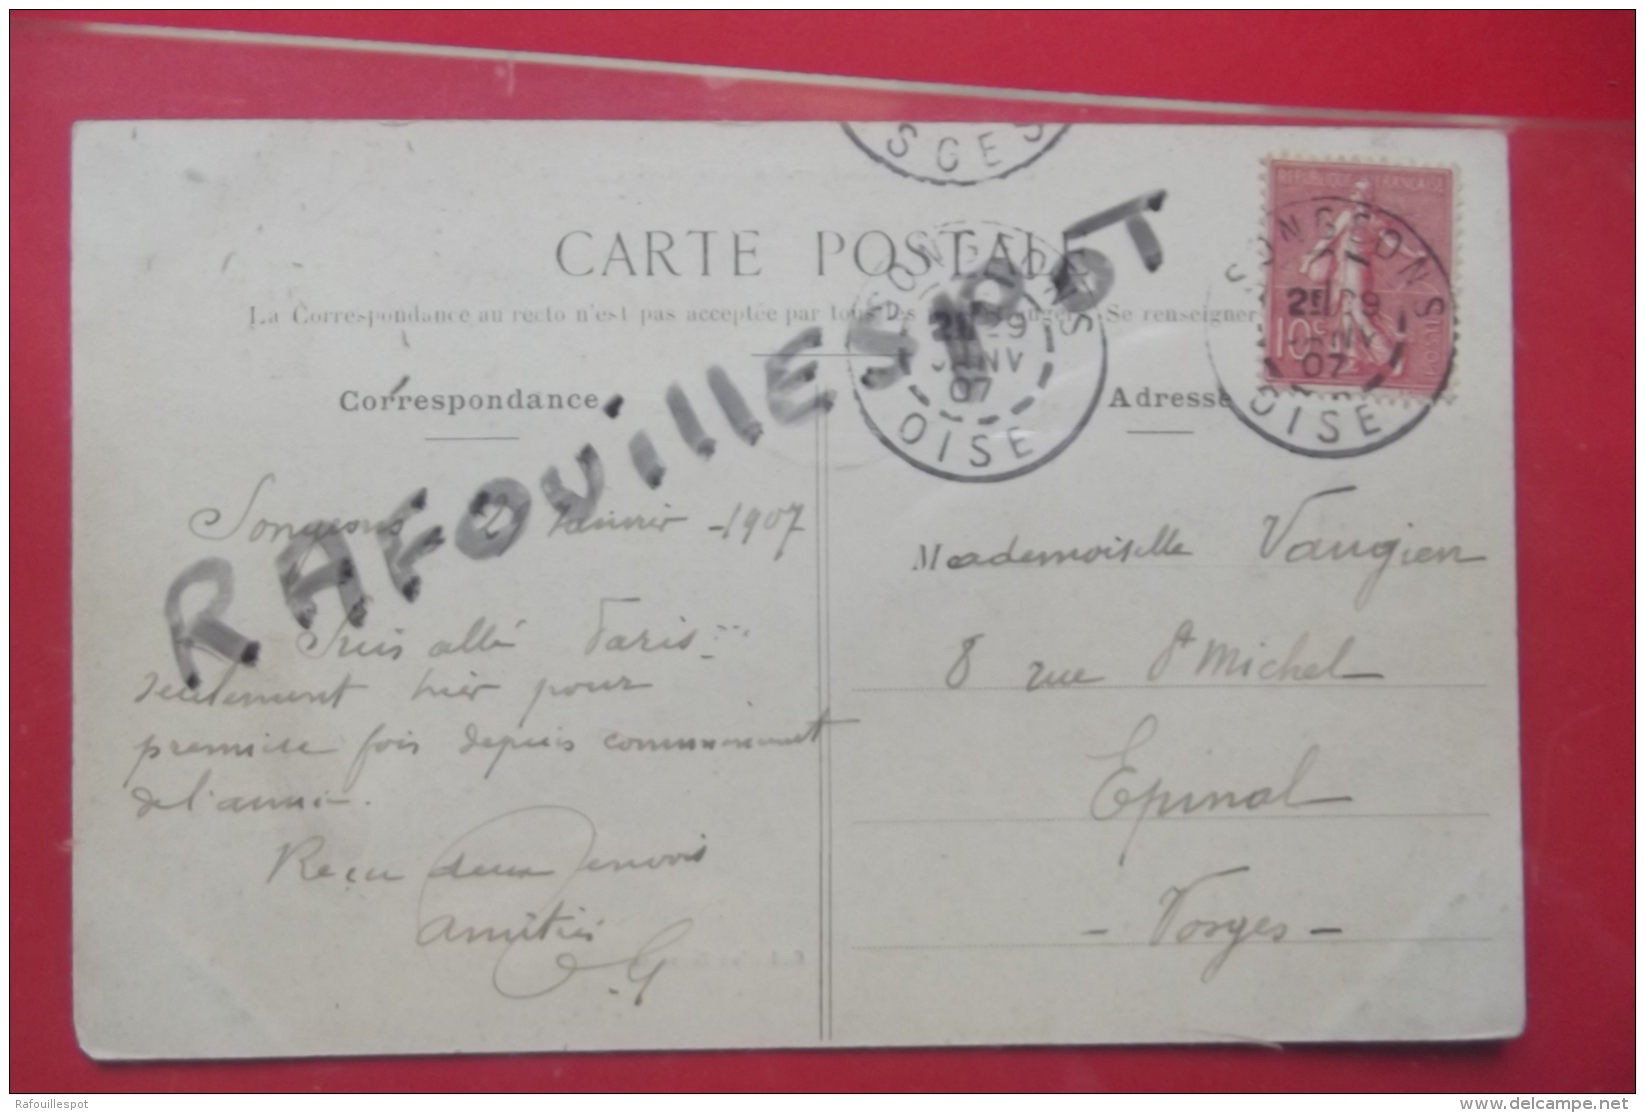 SGES
CARTE POSTALE
La Correspondance au recto n'est pas acceptée par tous les Se renseigner
RÉPUBLIQUE FRANÇAISE
10c POSTES
SONGEONS
2E 29
JANV
07
OISE
SONGEONS
2E 29
JANV
07
OISE
RAFOUILLESPOT
Correspondance
Adresse
Songeons Janvier - 1907
Suis allé Paris
seulement hier pour
première fois depuis commencement
de l'année.
Reçu deux envois
amitiés
G
Mademoiselle Vaugien
8 rue St Michel
Epinal
- Vosges -
Rafouillespot
delcampe.net